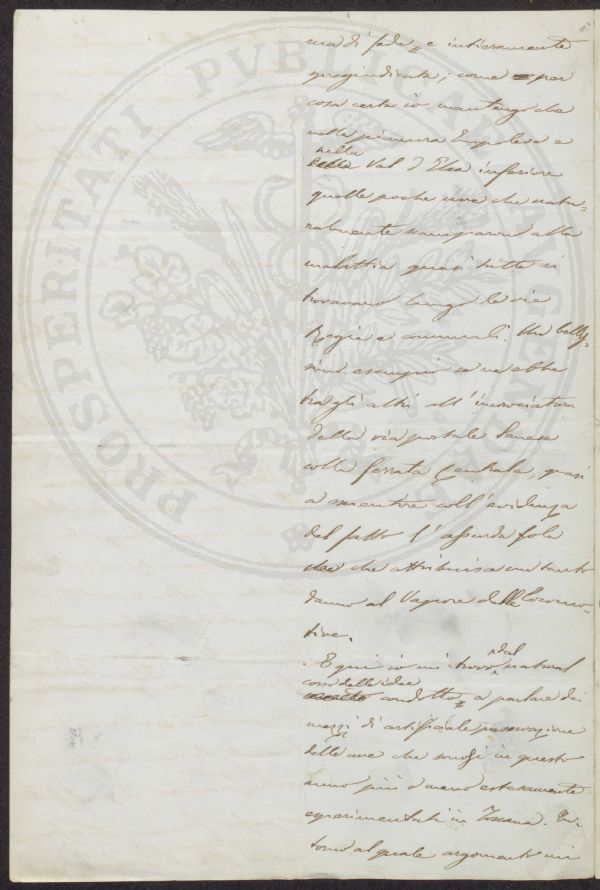 PROSPERITATI PUBLICAE AUGENDAE
ma di fede, e intieramente
spregiudicata; come per
cosa certa io mantengo che
nella pianura Empolese e
nella Val d'Elsa inferiore
quelle poche uve che natu-
ralmente scamparono alla
malattia quasi tutte si
trovavano lungo le vie
Regie e comunali. Un bellis-
simo esempio se ne ebbe
tra gli altri all'incrociatura
della via postale Sanese
colla ferrata Centrale, quasi
a smentire coll'evidenza
del fatto l'assurda fola
che attribuisce un tanto
danno al Vapore delle Locomo-
tive.
E qui io mi trovo dal natural
corso delle idee
condotto a parlare dei
mezzi di artificiale preservazione
delle uve che sonosi in questo
anno più o meno estesamente
esperimentati in Toscana. In-
torno al quale argomento mi